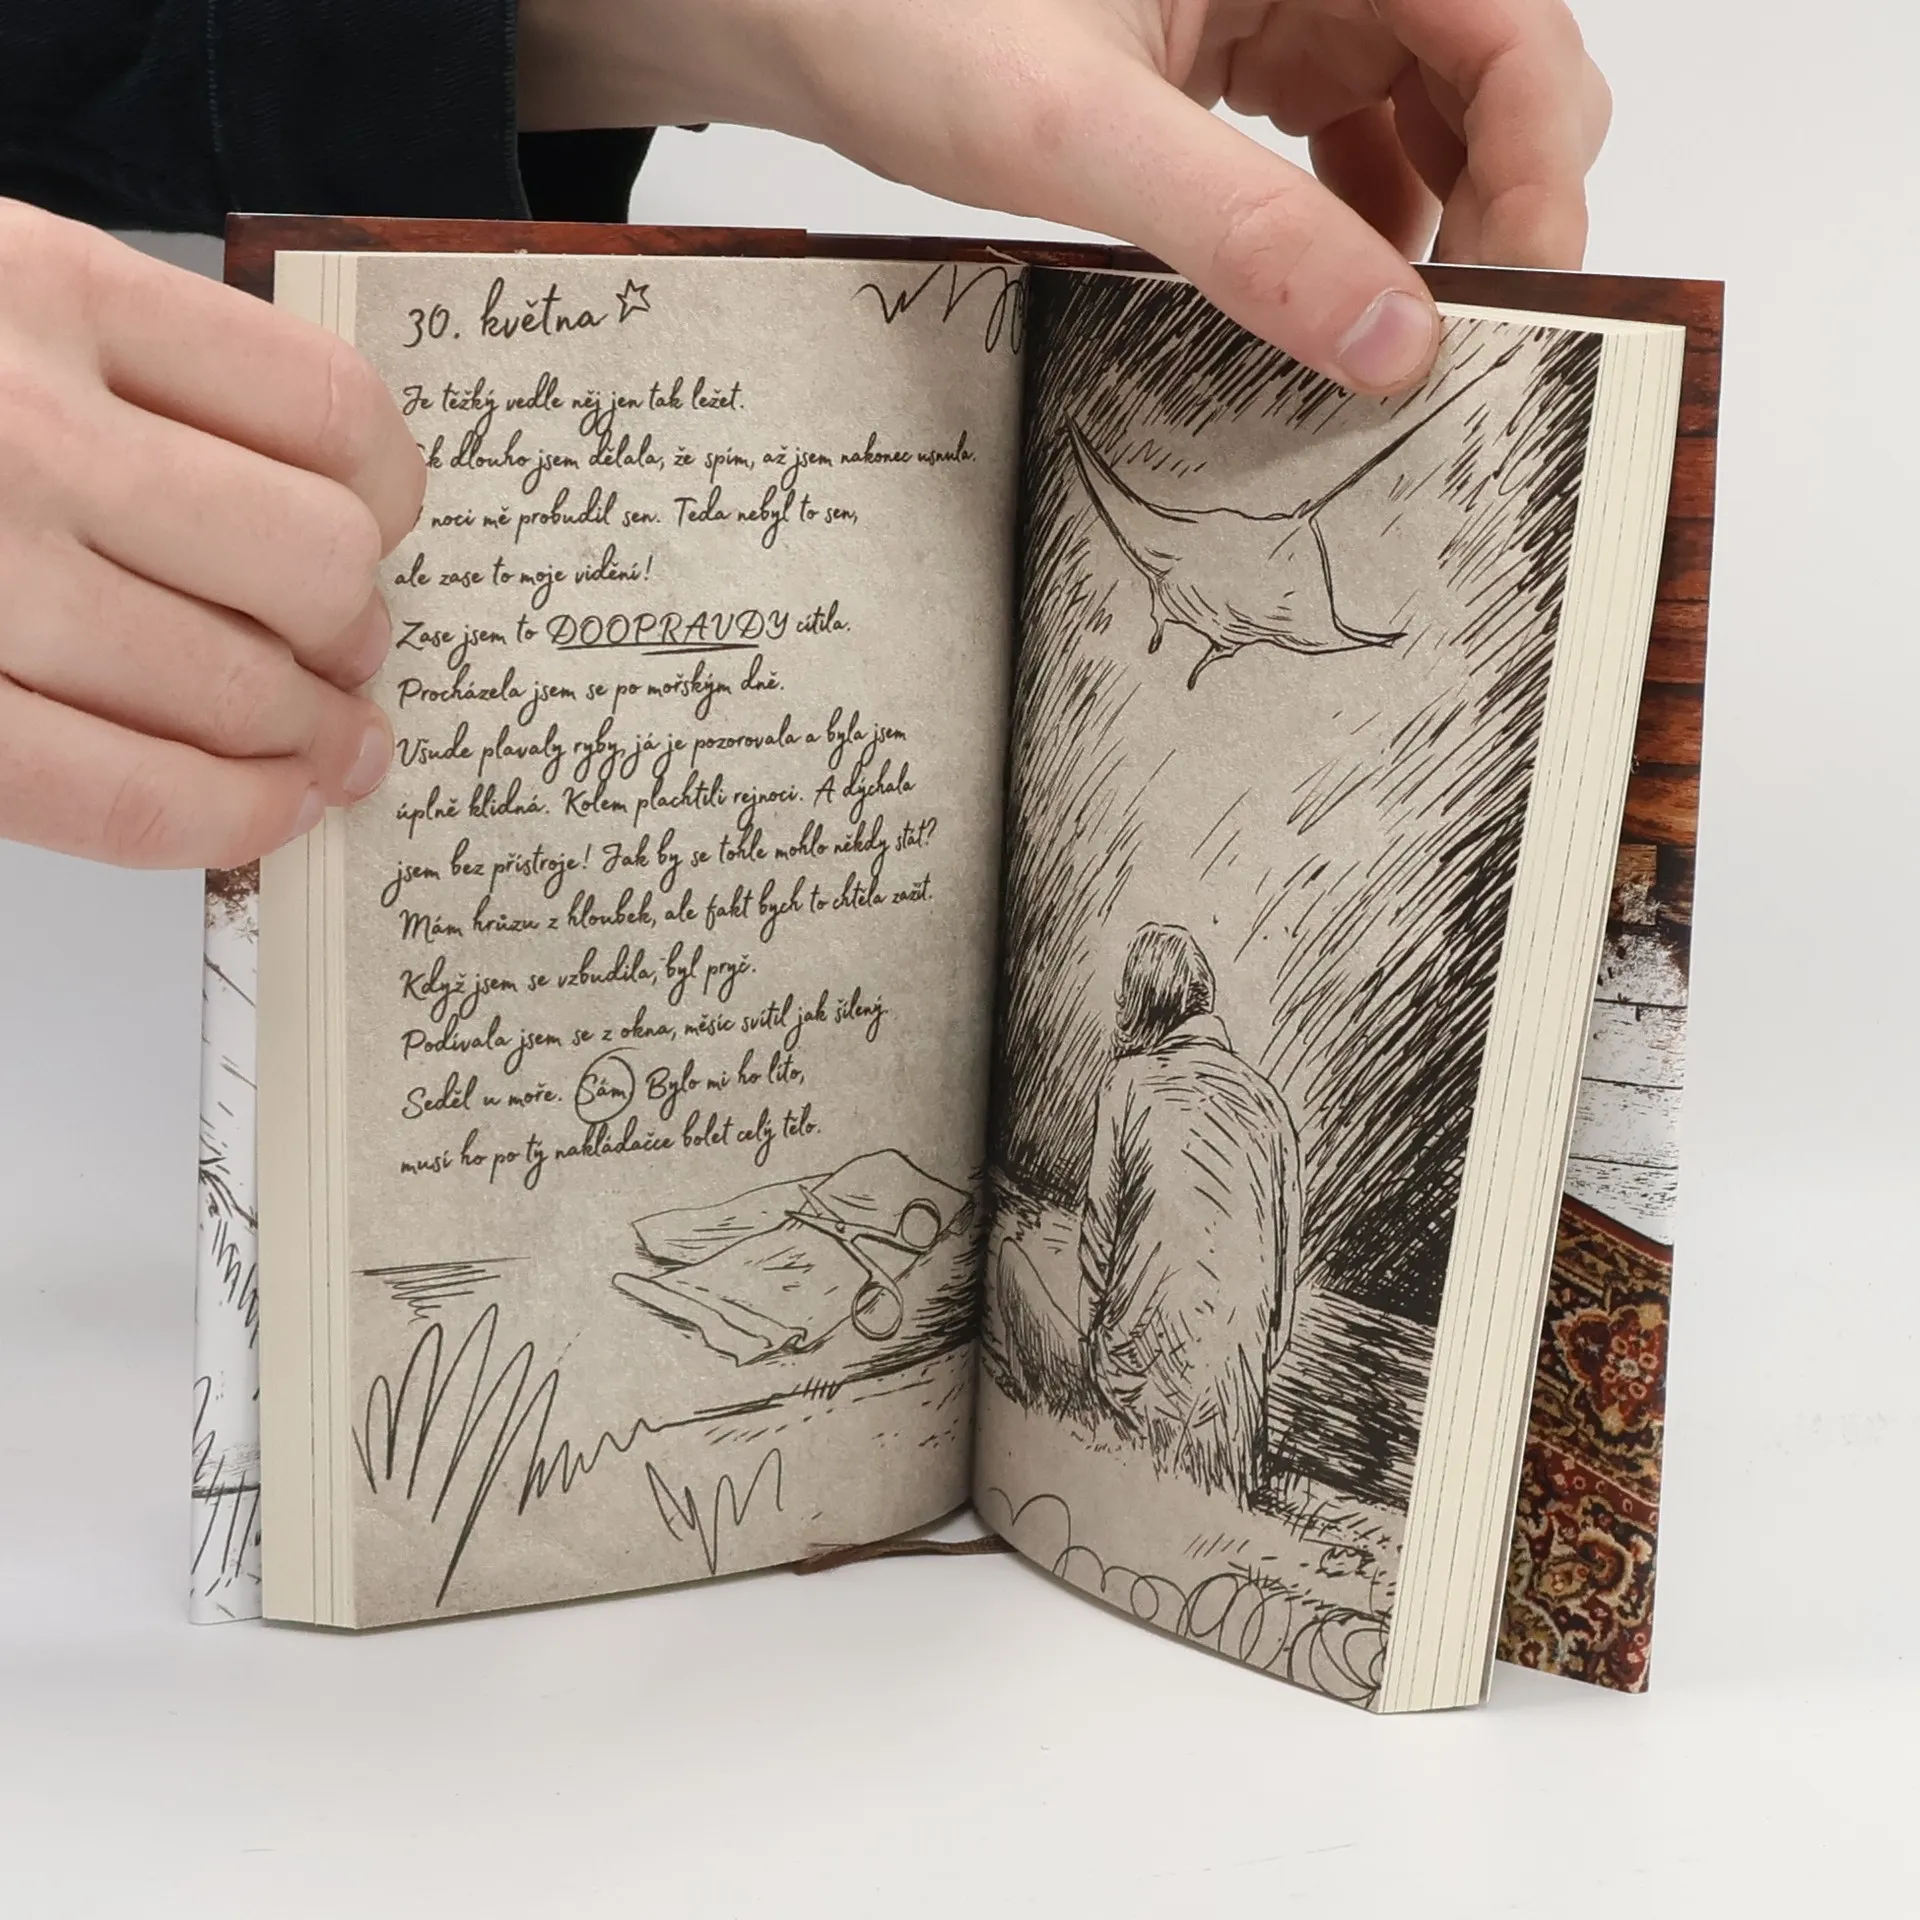 30. května
Je těžký vedle něj jen tak ležet.
dlouho jsem dělala, že spím, až jsem nakonec usnula.
noci mě probudil sen. Teda nebyl to sen,
ale zase to moje vidění!
Zase jsem to DOOPRAVDY cítila.
Procházela jsem se po mořským dně.
Všude plavaly ryby, já je pozorovala a byla jsem
úplně klidná. Kolem plachtili rejnoci. A dýchala
jsem bez přístroje! Jak by se tohle mohlo někdy stát?
Mám hrůzu z hloubek, ale fakt bych to chtěla zažít.
Když jsem se vzbudila, byl pryč.
Podívala jsem se z okna, měsíc svítil jak šílený.
Seděl u moře. Sám. Bylo mi ho líto,
musí ho po tý nakládačce bolet celý tělo.